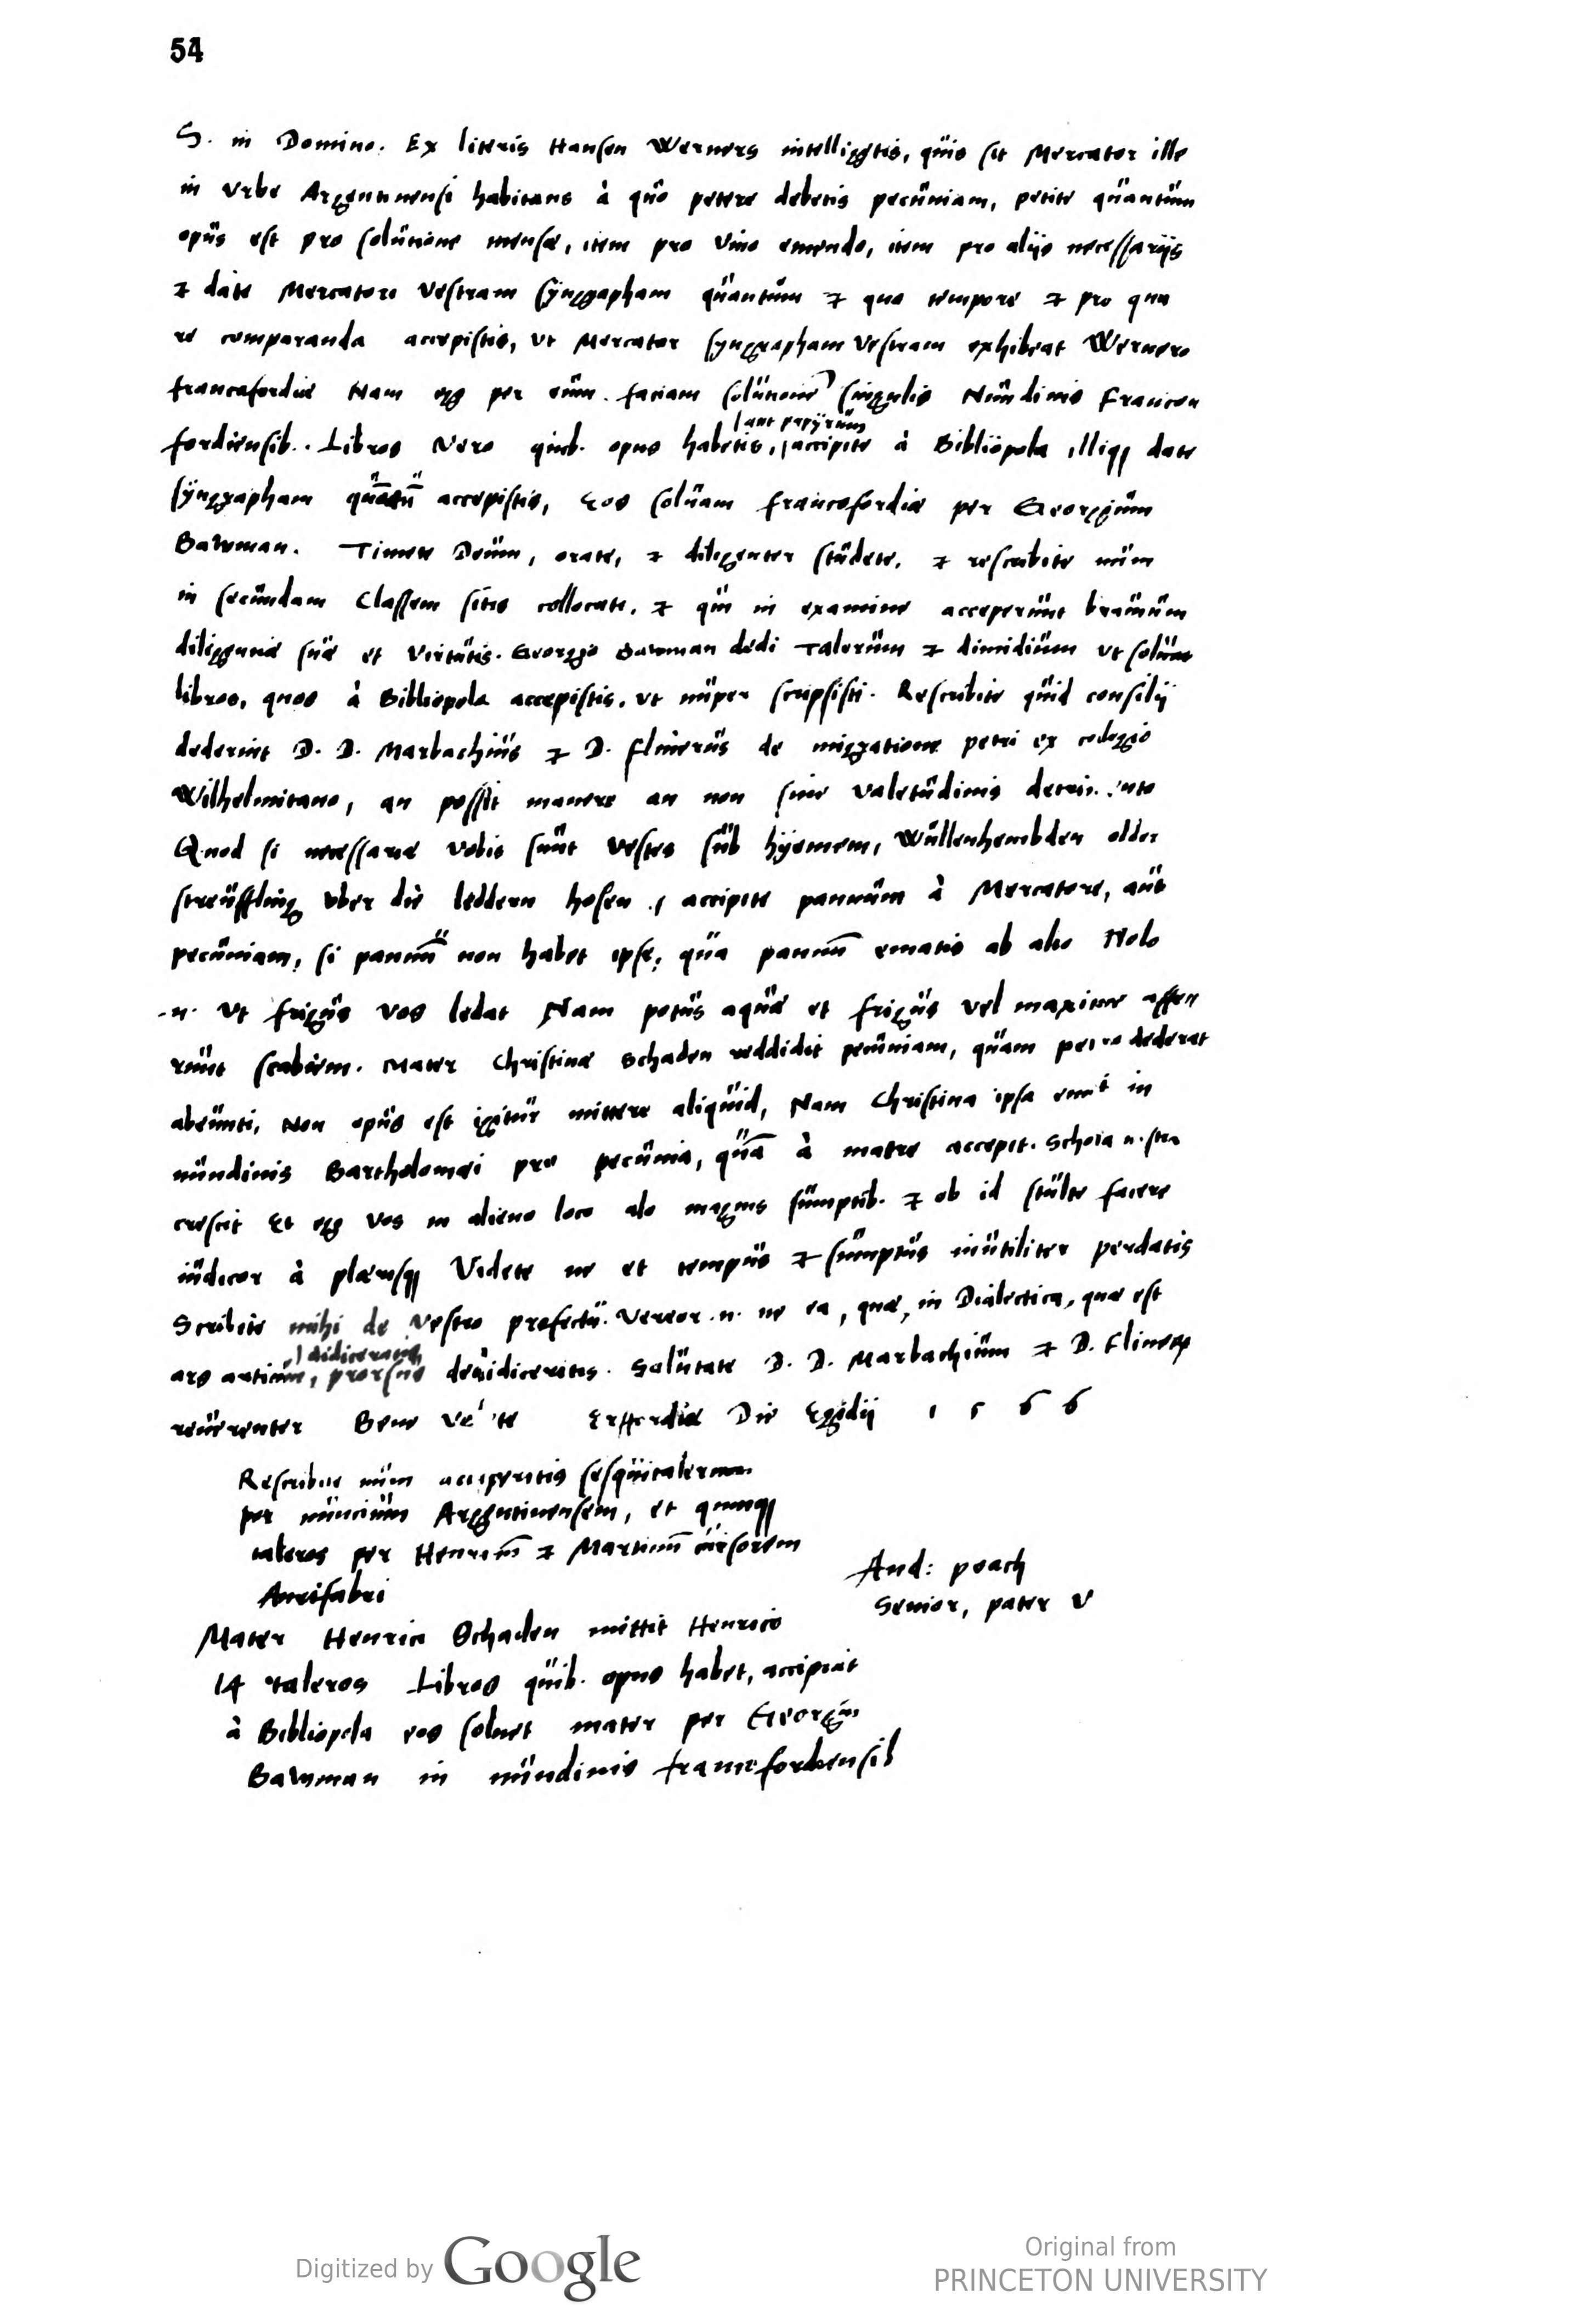 54
S. in Domino. Ex literis Hansen Werners intelligetis, quis sit Mercator ille
in Vrbe Argentinensi habitans à quo petere debetis pecuniam, petite quantum
opus est pro solutione mensæ, item pro vino emendo, item pro alijs necessarijs
& date Mercatori vestram syngrapham quantum & quo tempore & pro qua
re comparanda accepistis, vt Mercator syngrapham vestram exhibeat Wernero
francofordiæ Nam ego per eum faciam solutione singulis Nundinis Francou
aut papyrum
fordiensib. Libros Vero quib. opus habetis, accipite à Bibliopola illiq date
syngrapham quātū accepistis, Eos soluam francofordiæ per Georgium
Bawman. Timete Deum, orate, & diligenter studete. & rescribite num
in secundam Classem sitis collocati. & qui in examine acceperunt brauium
diligentiæ suæ et virtutis. Georgio Bawman dedi Talerum & dimidium vt soluat
libros, quos à Bibliopola accepistis. vt nuper scripsisti. Rescribite quid consilij
dederint D. D. Marbachius & D. flinerus de migratione petri ex collegio
Wilhelmitano, an possit manere an non sine valetudinis
Quod si necessariæ vobis sunt vestes sub hyemem, Wullenhembden odder
streuffling vber die leddern hosen, accipite pannum à Mercatore, aut
pecuniam, si pannū non habet ipse, qua pannū ematis ab alio Nolo
.n. vt frigus vos ledat Nam potus aquæ et frigus vel maxime affe
runt scabiem. Mater Christinæ Schaden reddidit pecuniam, quam petro dederat
abeunti, Non opus est igitur mittere aliquid, Nam Christina ipsa emit in
nundinis Bartholomæi pro pecunia, quā à matre accepit. Schola
crescit Et ego vos in alieno loco alo magnis sumptib. & ob id stulte facere
iudicor à plærisq Videte ne et tempus & sumptus inutiliter perdatis
Scribite mihi de vestro profectu. Vereor .n. ne ea, quæ, in Dialectica, quæ est
didiceratis,
ars artium, prorsus dedidiceritis. Salutate D. D. Marbachium & D. Flinerū
reuerenter Bene Erffordiæ Die Egidij 1 5 6 6
Rescribite num acceperitis sesquitalerum
per nuncium Argentinensem, et quinq
taleros per Henricū & Martinū cursorem
Aurifabri
And: poach
Senior, pater V
Mater Henrici Schaden mittit Henrico
14 taleros Libros quib. opus habet, accipiat
à Bibliopola eos soluet mater per Georgiū
Bawman in nundinis francofordiensib
Digitized by Google
Original from
PRINCETON UNIVERSITY